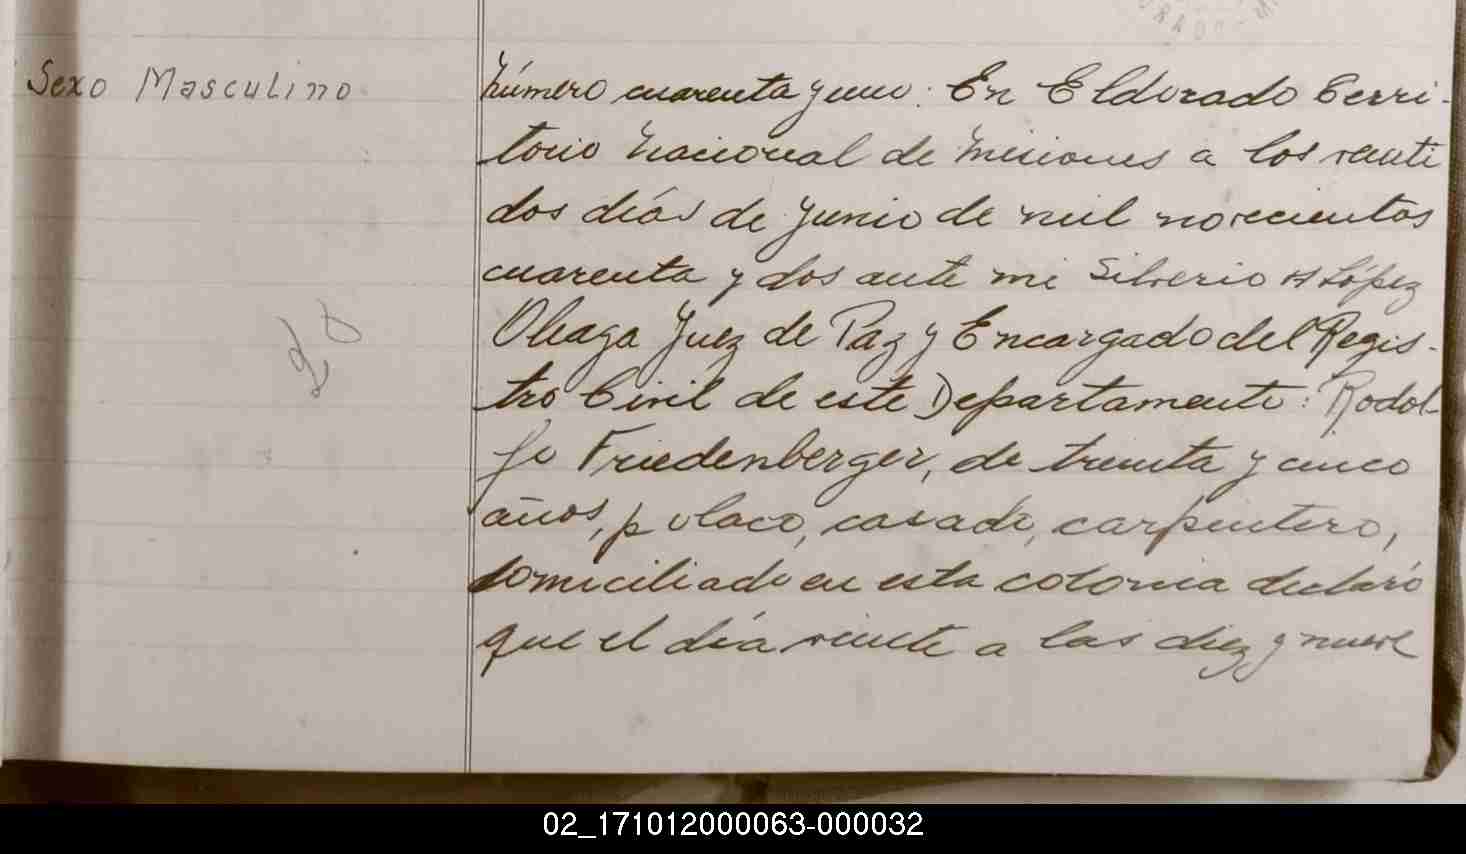 Sexo Masculino
Número cuarenta y uno: En Eldorado Terri-
torio Nacional de Misiones a los veinti
dos días de Junio de mil novecientos
cuarenta y dos ante mi Silverio López
Oleaga Juez de Paz y Encargado del Regis-
tro Civil de este Departamento: Rodol-
fo Friedenberger, de treinta y cinco
años, polaco, casado, carpintero,
domiciliado en esta colonia declaró
que el día veinte a las diez y nueve
02_171012000063-000032